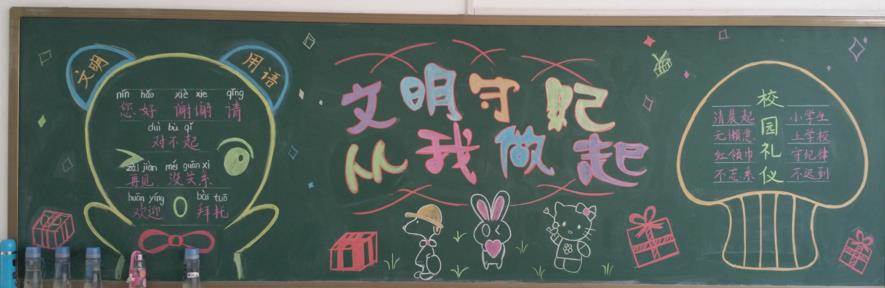 文明 用语
nín hǎo xiè xie qǐng
您好 谢谢 请
duì bù qǐ
对不起
zài jiàn méi guān xi
再见 没关系
huān yíng bài tuō
欢迎 拜托
文明守纪
从我做起
校园礼仪
清晨起 小学生
无懒意 上学校
红领巾 守纪律
不忘系 不迟到